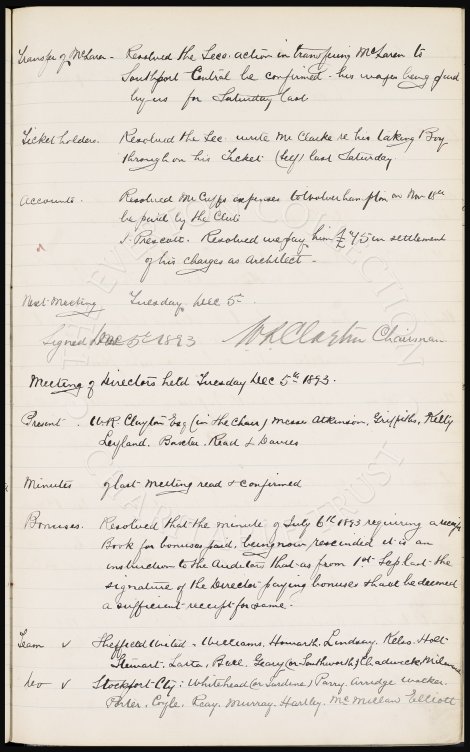 Transfer of McLaren - Resolved the Secs. action in transfering McLaren to
Southport Central be confirmed - his wages being paid
by us for Saturday last
Ticket holders. Resolved the Sec. write Mr Clarke re his taking Boy
through on his Ticket (self) last Saturday.
Accounts. Resolved Mr Cuffs expenses to Wolverhampton on Nov
be paid by the Club
J. Prescott. Resolved we pay him £45 in settlement
of his charges as Architect -
Next Meeting Tuesday, Dec 5th
Signed Dec 5th 1893 W R Clayton Chairman
Meeting of Directors held Tuesday Dec 5th 1893.
Present. W.R. Clayton Esq (in the Chair) Messrs Atkinson, Griffiths, Kelly
Leyland, Baxter, Read & Davies
Minutes of last meeting read & confirmed
Bonuses. Resolved that the minute of July 6th 1893 requiring a receipt
Book for bonuses paid, being now rescinded it is an
instruction to the Auditors that as from 1st Sep last the
signature of the Director paying bonuses shall be deemed
a sufficient receipt for same.
Team v Sheffield United - Williams, Howarth, Lindsay, Kelso, Holt
Stewart, Latta, Bell, Geary (or Southworth) Chadwick, Milward
do v Stockport Cty: Whitehead (or Jardine) Parry. Arridge Walker
Porter. Coyle. Reay. Murray. Hartley. McMillan Elliott